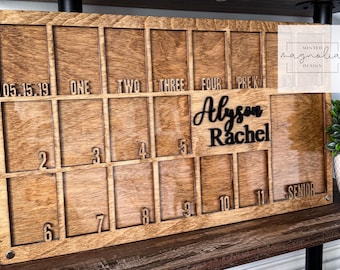 MINTED
magnolia
DESIGN
05.15.19 ONE TWO THREE FOUR PRE K
Alyson
Rachel
2 3 4 5
6 7 8 9 10 11 SENIOR